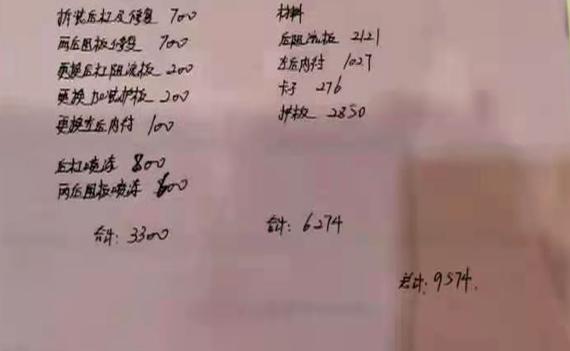 拆装后杠及修复 700
两后围板修复 700
更换后杠阻流板 200
更换 护板 200
更换左后内衬 100
后杠喷漆 800
两后围板喷漆 600
合计: 3300
材料
后阻流板 2121
左后内衬 1027
卡子 276
护板 2850
合计: 6274
总计: 9574.